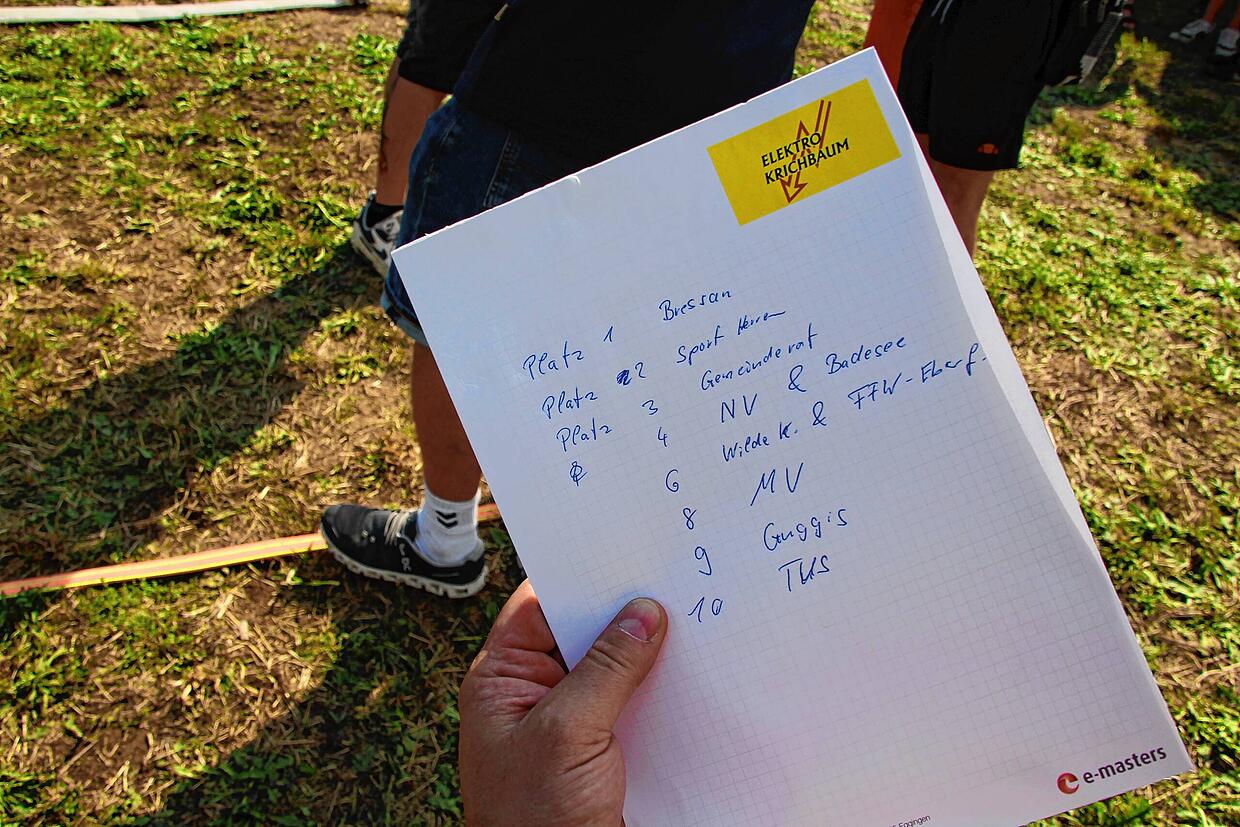 ELEKTRO
KRICHBAUM
Platz 1 Bressan
Platz 2 Sport Herren
Platz 3 Gemeinderat
4 NV & Badesee
6 Wilde K. & FFW-Eberf.
8 MV
9 Guggis
10 TUS
e-masters
Eggingen